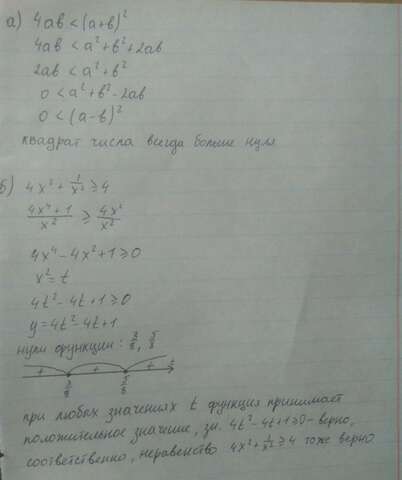 а) 4ab < (a+b)²
4ab < a² + b² + 2ab
2ab < a² + b²
0 < a² + b² - 2ab
0 < (a-b)²
квадрат числа всегда больше нуля
б) 4x² + 1/x² ≥ 4
(4x⁴ + 1)/x² ≥ 4x²/x²
4x⁴ - 4x² + 1 ≥ 0
x² = t
4t² - 4t + 1 ≥ 0
y = 4t² - 4t + 1
нули функции:
+ + + t
при любых значениях t функция принимает
положительное значение, зн. 4t² - 4t + 1 ≥ 0 - верно,
соответственно, неравенство 4x² + 1/x² ≥ 4 тоже верно